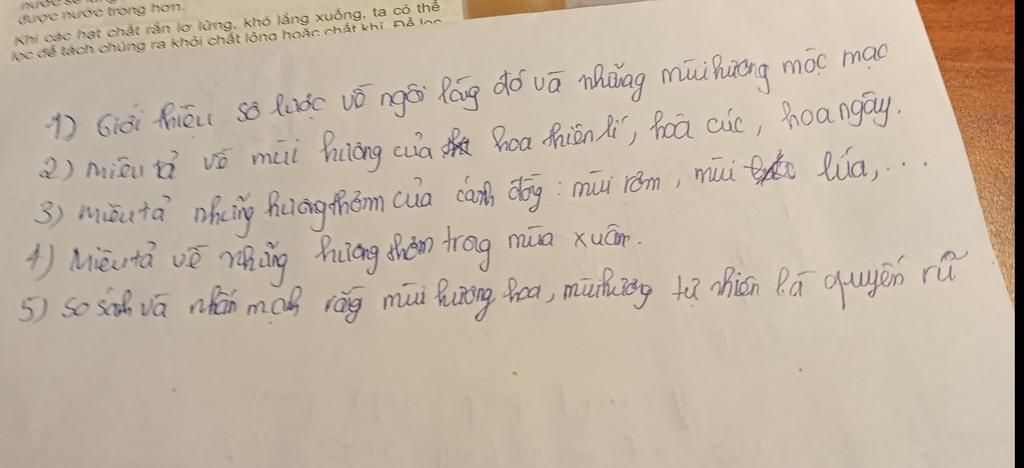 được nước trong hơn.
Khi các hạt chất rắn lơ lửng, khó lắng xuống, ta có thể
lọc để tách chúng ra khỏi chất lỏng hoặc chất khí. Để lọc
1) Giới thiệu sơ lược về ngôi làng đó và những mùi hương mộc mạc
2) miêu tả về mùi hương của hoa thiên lí, hoa cúc, hoa ngâу.
3) miêu tả những hương thơm của cánh đồng : mùi rơm, mùi lúa,...
4) Miêu tả về những hương thơm trong mùa xuân.
5) So sánh và nhấn mạnh rằng mùi hương hoa, mùi hương tự nhiên là quyến rũ